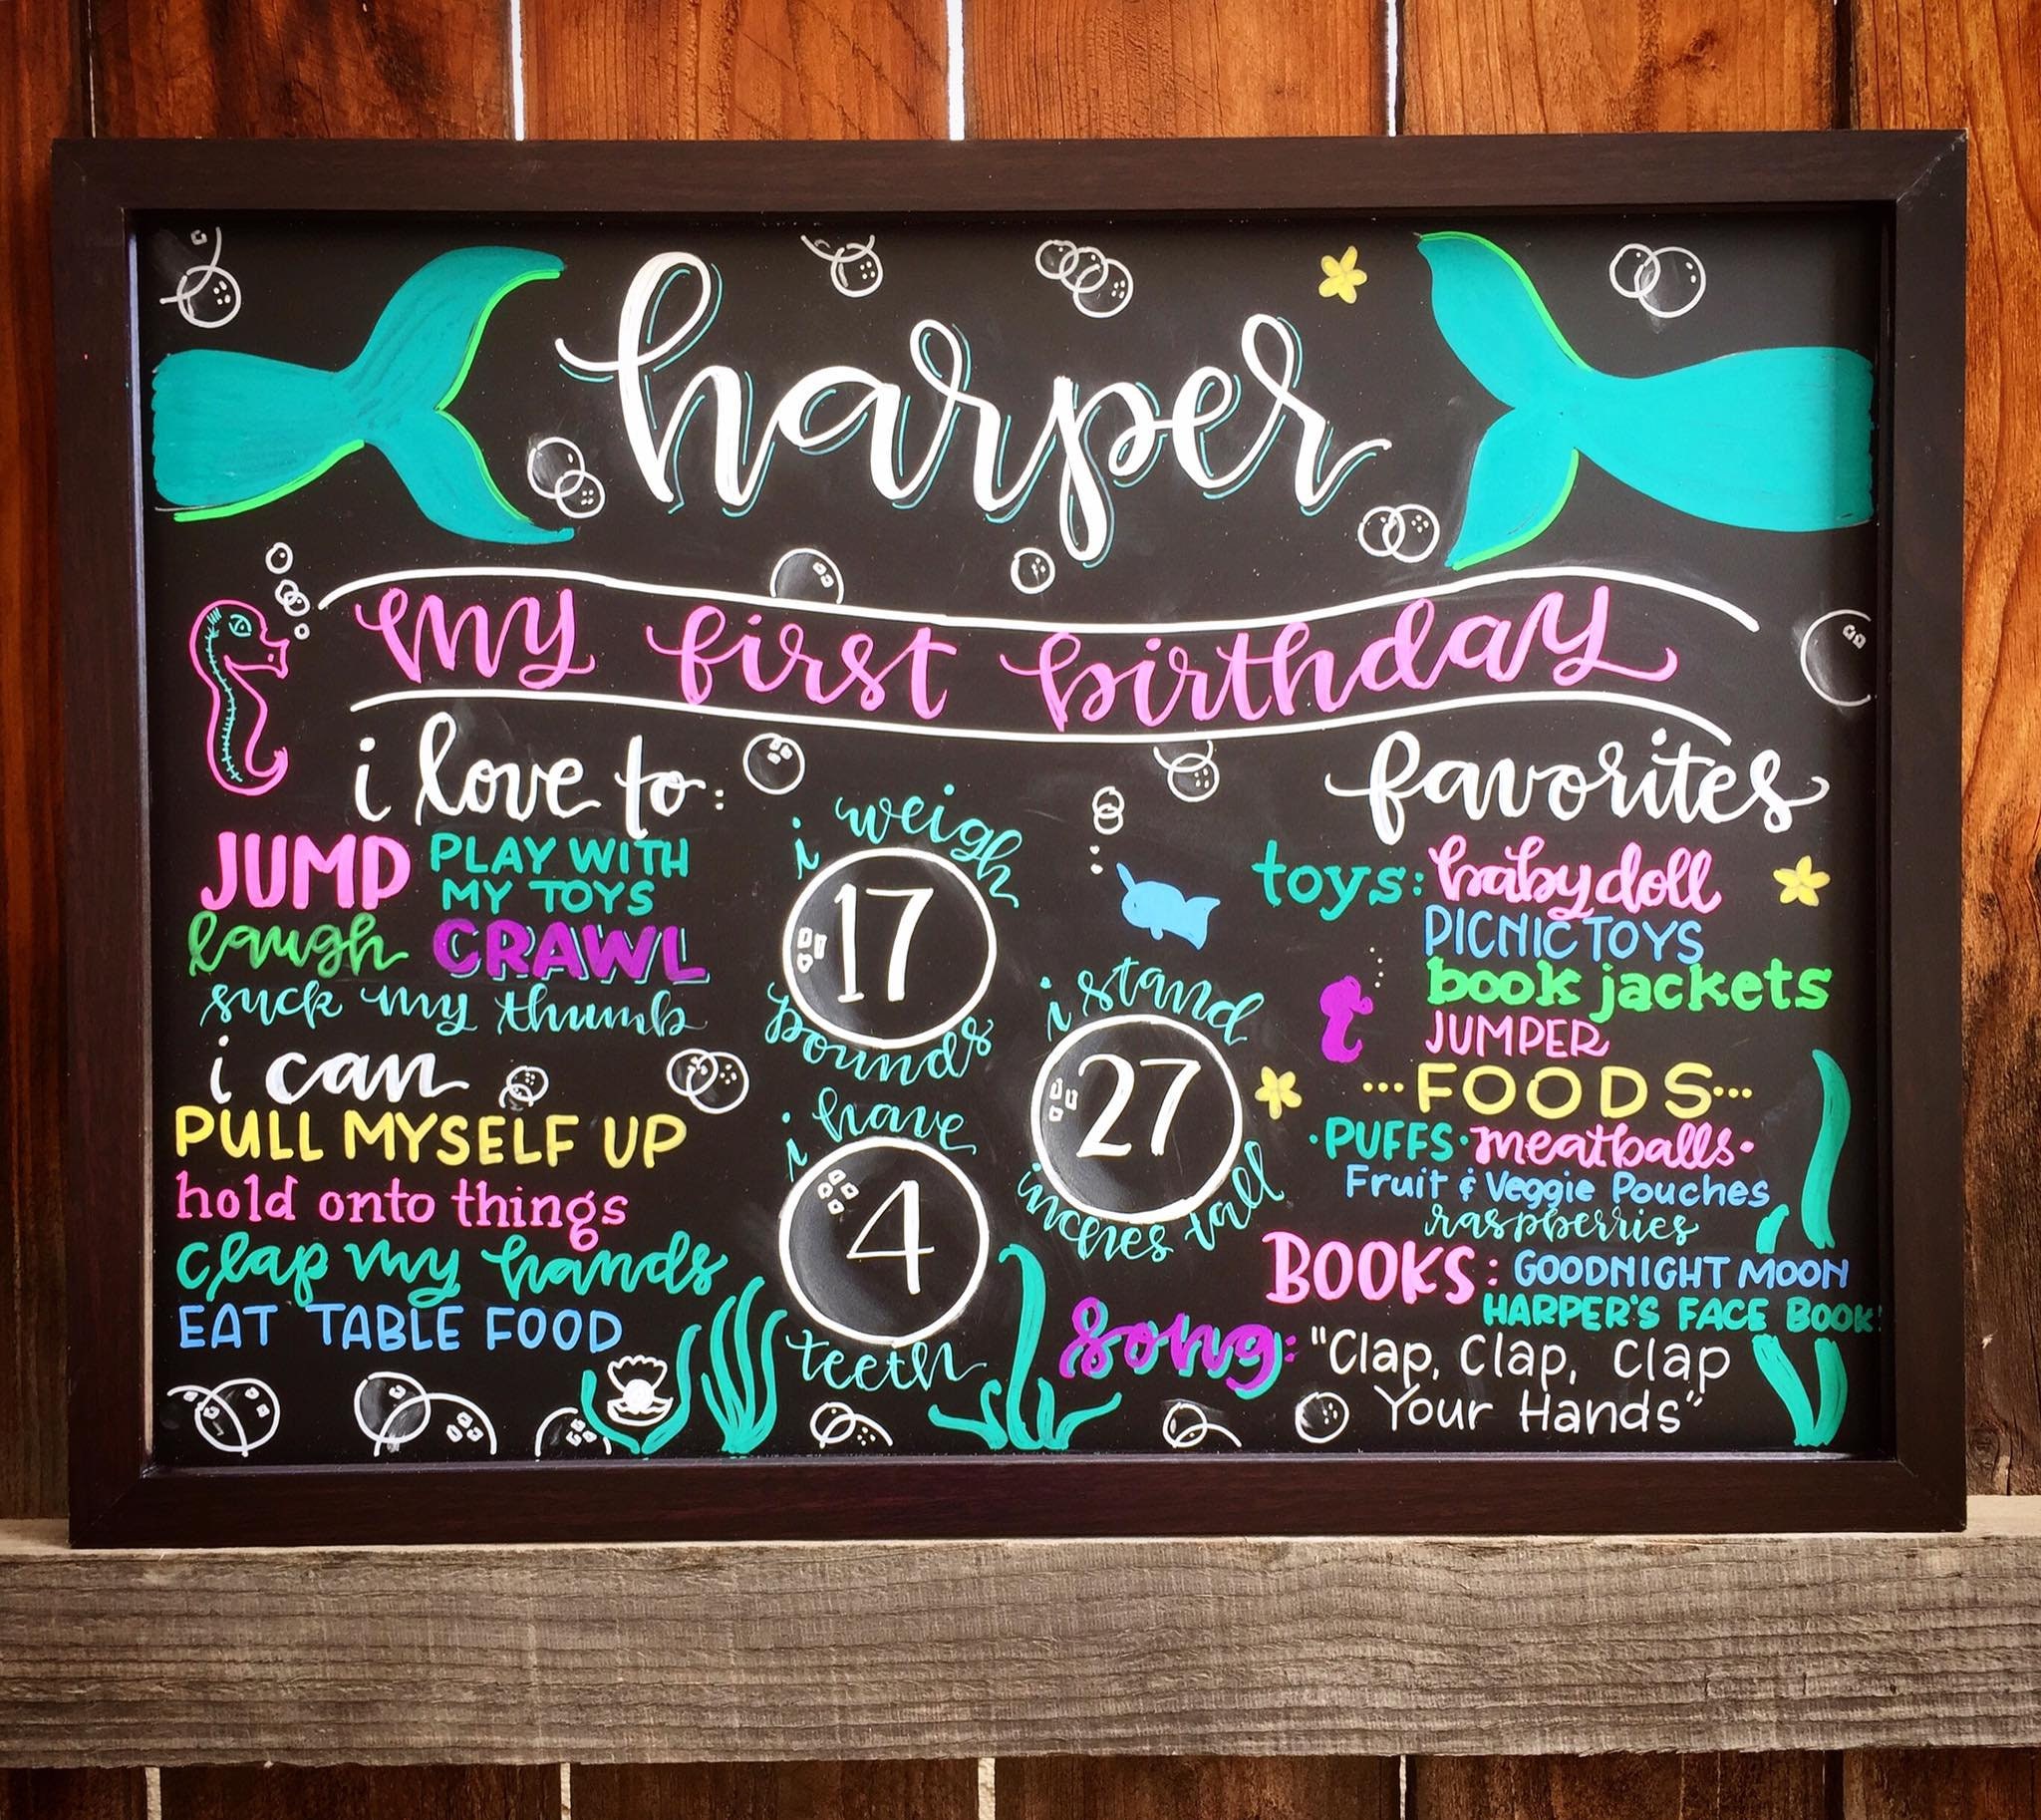 harper
my first birthday
i love to:
JUMP PLAY WITH
MY TOYS
laugh CRAWL
suck my thumb
i can
PULL MYSELF UP
hold onto things
clap my hands
EAT TABLE FOOD
i weigh
17
pounds
i have
4
teeth
i stand
27
inches tall
favorites
toys: baby doll
PICNIC TOYS
book jackets
JUMPER
...FOODS...
·PUFFS·meatballs·
Fruit & Veggie Pouches
raspberries
BOOKS: GOODNIGHT MOON
HARPER'S FACE BOOK!
song: "Clap, Clap, Clap
Your Hands"